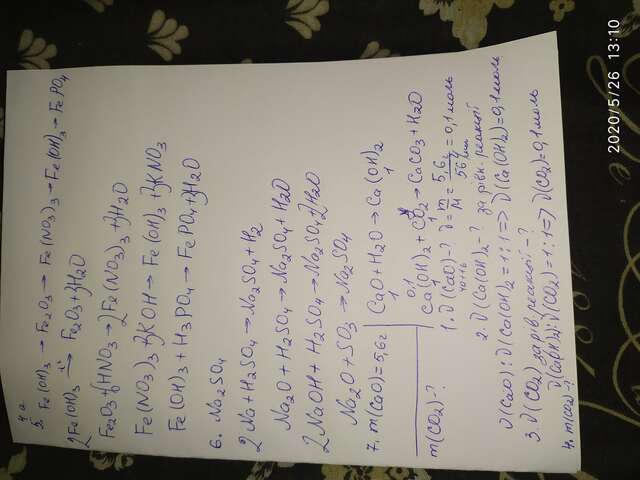 4 a
5. Fe(OH)3 → Fe2O3 → Fe(NO3)3 → Fe(OH)3 → FePO4
2Fe(OH)3 →t° Fe2O3+3H2O
Fe2O3+6HNO3 → 2Fe(NO3)3+3H2O
Fe(NO3)3+3KOH → Fe(OH)3+3KNO3
Fe(OH)3+H3PO4 → FePO4+3H2O
6. Na2SO4
2Na+H2SO4 → Na2SO4+H2
Na2O+H2SO4 → Na2SO4+H2O
2NaOH+H2SO4 → Na2SO4+2H2O
Na2O+SO3 → Na2SO4
7. m(CaO)=5,6г
m(CO2)-?
CaO+H2O → Ca(OH)2
1 1
0,1
Ca(OH)2+CO2 → CaCO3+H2O
1 1
1. ν(CaO)-? ν=m/M=5,6/56=0,1моль
40+16
2. ν(Ca(OH)2-? за рівн. реакції
ν(CaO):ν(Ca(OH)2=1:1 => ν(Ca(OH)2)=0,1моль
3. ν(CO2) за рів. реакції-?
ν(Ca(OH)2):ν(CO2)=1:1 => ν(CO2)=0,1моль
4. m(CO2)-?
2020/5/26 13:10